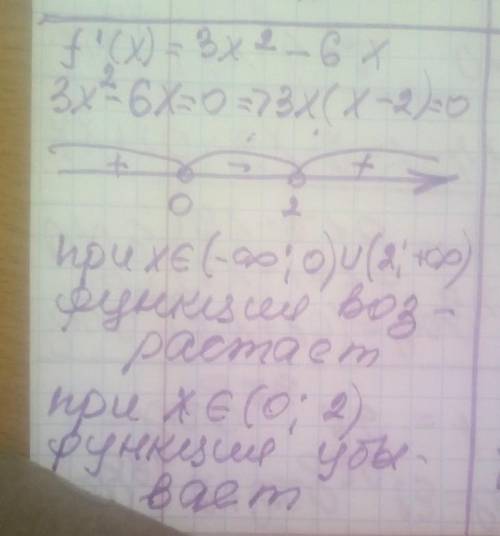 f'(x) = 3x² - 6x
3x² - 6x = 0 => 3x(x - 2) = 0
+ - +
0 2
при x ∈ (-∞; 0) ∪ (2; +∞)
функция воз-
растает
при x ∈ (0; 2)
функция убы-
вает